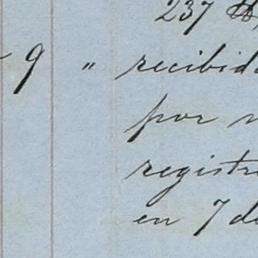 237
9 " recibid
por
registr
en 7 de